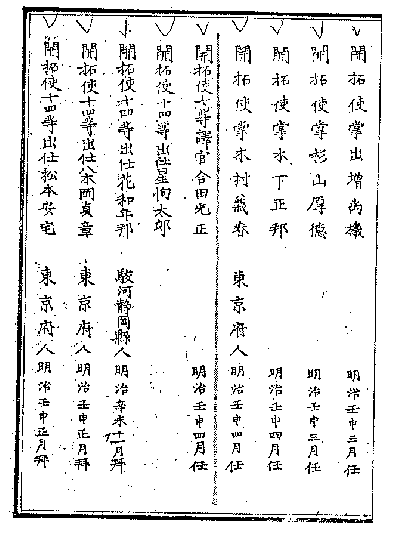 開拓使掌出増尚機 明治壬申三月任
開拓使掌杉山厚徳 明治壬申三月任
開拓使掌木下正邦 明治壬申四月任
開拓使掌木村義春 東京府人明治壬申四月任
開拓使七等譯官合田光正 明治壬申四月任
開拓使十四等出仕星恂太郎
開拓使十四等出仕花和年邦 駿河静岡縣人明治辛未十一月拜
開拓使十四等出仕八木岡貞章 東京府人明治壬申正月拜
開拓使十四等出仕松本安宅 東京府人明治壬申正月拜